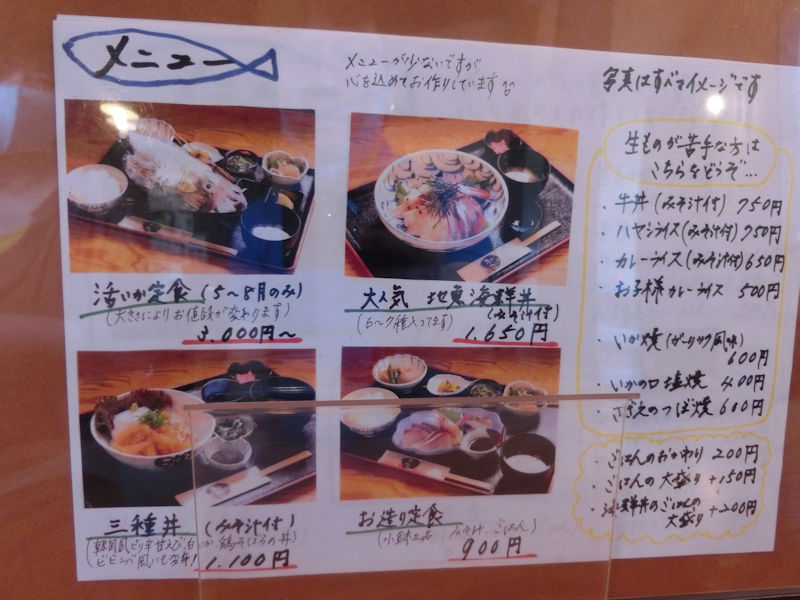 メニュー
メニューが少ないですが
心を込めてお作りしています
写真はすべてイメージです
活いか定食 (5〜8月のみ)
(大きさによりお値段が変わります)
3.000円〜
大人気 地魚海鮮丼
(みそ汁付)
(6〜7種入ってます)
1.650円
三種丼 (みそ汁付)
(韓国風ピリ辛甘えび、白いか、鶏そぼろの丼)
(ビビンバ風にも変身!)
1.100円
お造り定食
(小鉢2品、みそ汁、ごはん)
900円
生ものが苦手な方は
こちらをどうぞ…
・牛丼 (みそ汁付) 750円
・ハヤシライス (みそ汁付) 750円
・カレーライス (みそ汁付) 650円
・お子様カレーライス 500円
・いか焼 (ガーリック風味)
600円
・いかの口塩焼 400円
・さざえのつぼ焼 600円
・ごはんのおかわり 200円
・ごはんの大盛り +150円
・海鮮丼のごはんの
大盛り +200円